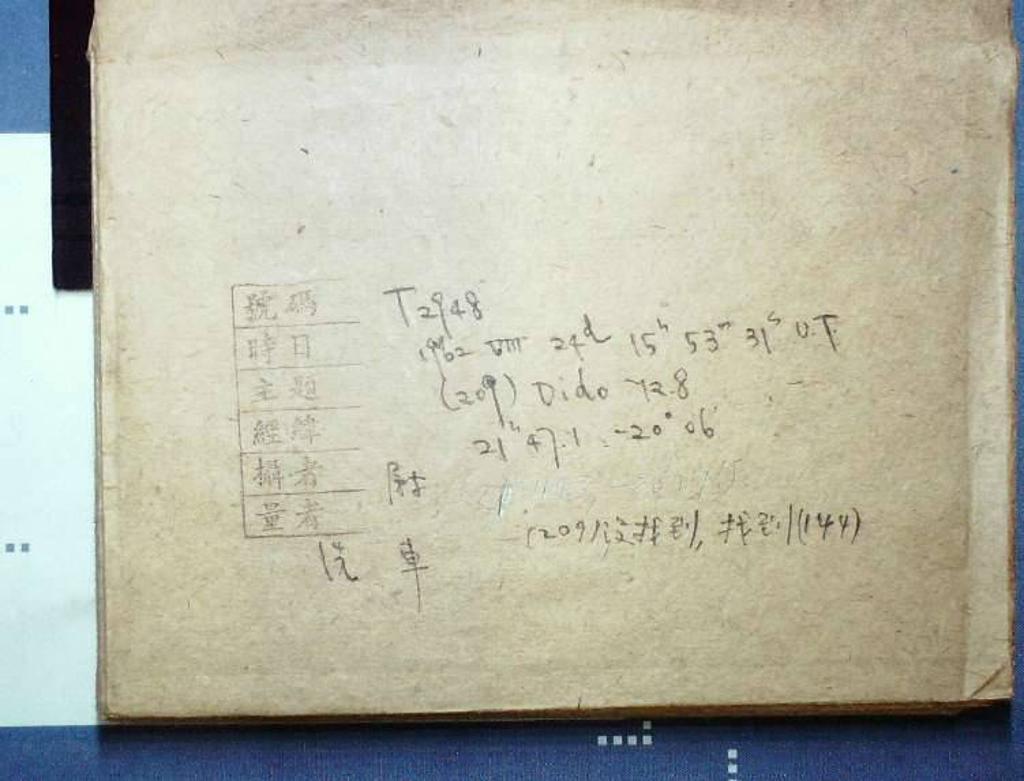 號碼 T2948
時日 1962 VIII 24d 15h 53m 31s U.T
主題 (209) Dido 12.8
經緯 21h 47.1 -20° 06'
攝者
量者
(209)没找到, 找到(144)
洗 車